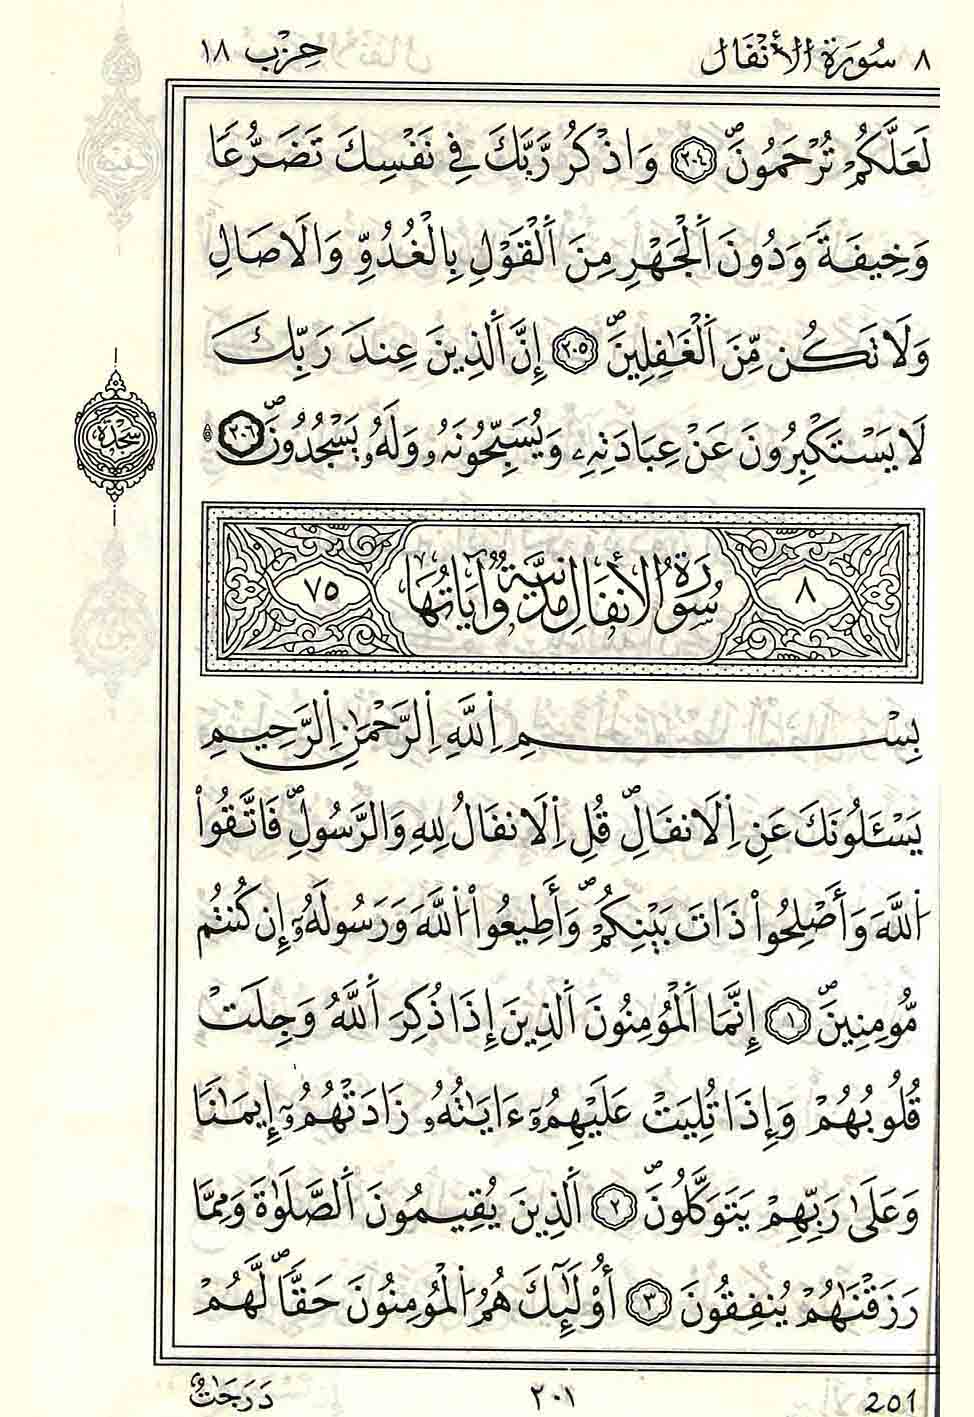 ٨ سُورَةُ الأَنْفَالِ حِزْب ١٨
لَعَلَّكُمْ تُرْحَمُونَۖ ٢٠٤ وَاذْكُر رَّبَّكَ فِے نَفْسِكَ تَضَرُّعاٗ
وَخِيفَةٗ وَدُونَ اَلْجَهْرِ مِنَ اَلْقَوْلِ بِالْغُدُوِّ وَالَاصَالِ
وَلَا تَكُن مِّنَ اَلْغَٰفِلِينَۖ ٢٠٥ إِنَّ اَلذِينَ عِندَ رَبِّكَ
لَا يَسْتَكْبِرُونَ عَنْ عِبَادَتِهِۦ وَيُسَبِّحُونَهُۥ وَلَهُۥ يَسْجُدُونَۖ ٢٠٦
سَجْدَة
٨ سُورَةُ الأَنفَالِ مَدَنِيَّةٌ وَآيَاتُهَا ٧٥
بِسْمِ اِللَّهِ اِلرَّحْمَٰنِ اِلرَّحِيمِ
يَسْـَٔلُونَكَ عَنِ اِلَانفَالِۖ قُلِ اِلَانفَالُ لِلهِ وَالرَّسُولِۖ فَاتَّقُواْ
اُللَّهَ وَأَصْلِحُواْ ذَاتَ بَيْنِكُمْۖ وَأَطِيعُواْ اُللَّهَ وَرَسُولَهُۥٓ إِن كُنتُم
مُّومِنِينَۖ ١ إِنَّمَا اَلْمُومِنُونَ اَلذِينَ إِذَا ذُكِرَ اَللَّهُ وَجِلَتْ
قُلُوبُهُمْ وَإِذَا تُلِيَتْ عَلَيْهِمُۥٓ ءَايَٰتُهُۥ زَادَتْهُمُۥٓ إِيمَٰناٗ
وَعَلَىٰ رَبِّهِمْ يَتَوَكَّلُونَۖ ٢ اَلذِينَ يُقِيمُونَ اَلصَّلَوٰةَ وَمِمَّا
رَزَقْنَٰهُمْ يُنفِقُونَ ٣ أُوْلَٰٓئِكَ هُمُ اُلْمُومِنُونَ حَقّاٗۖ لَّهُمْ
دَرَجَٰتٌ
٢٠١
201